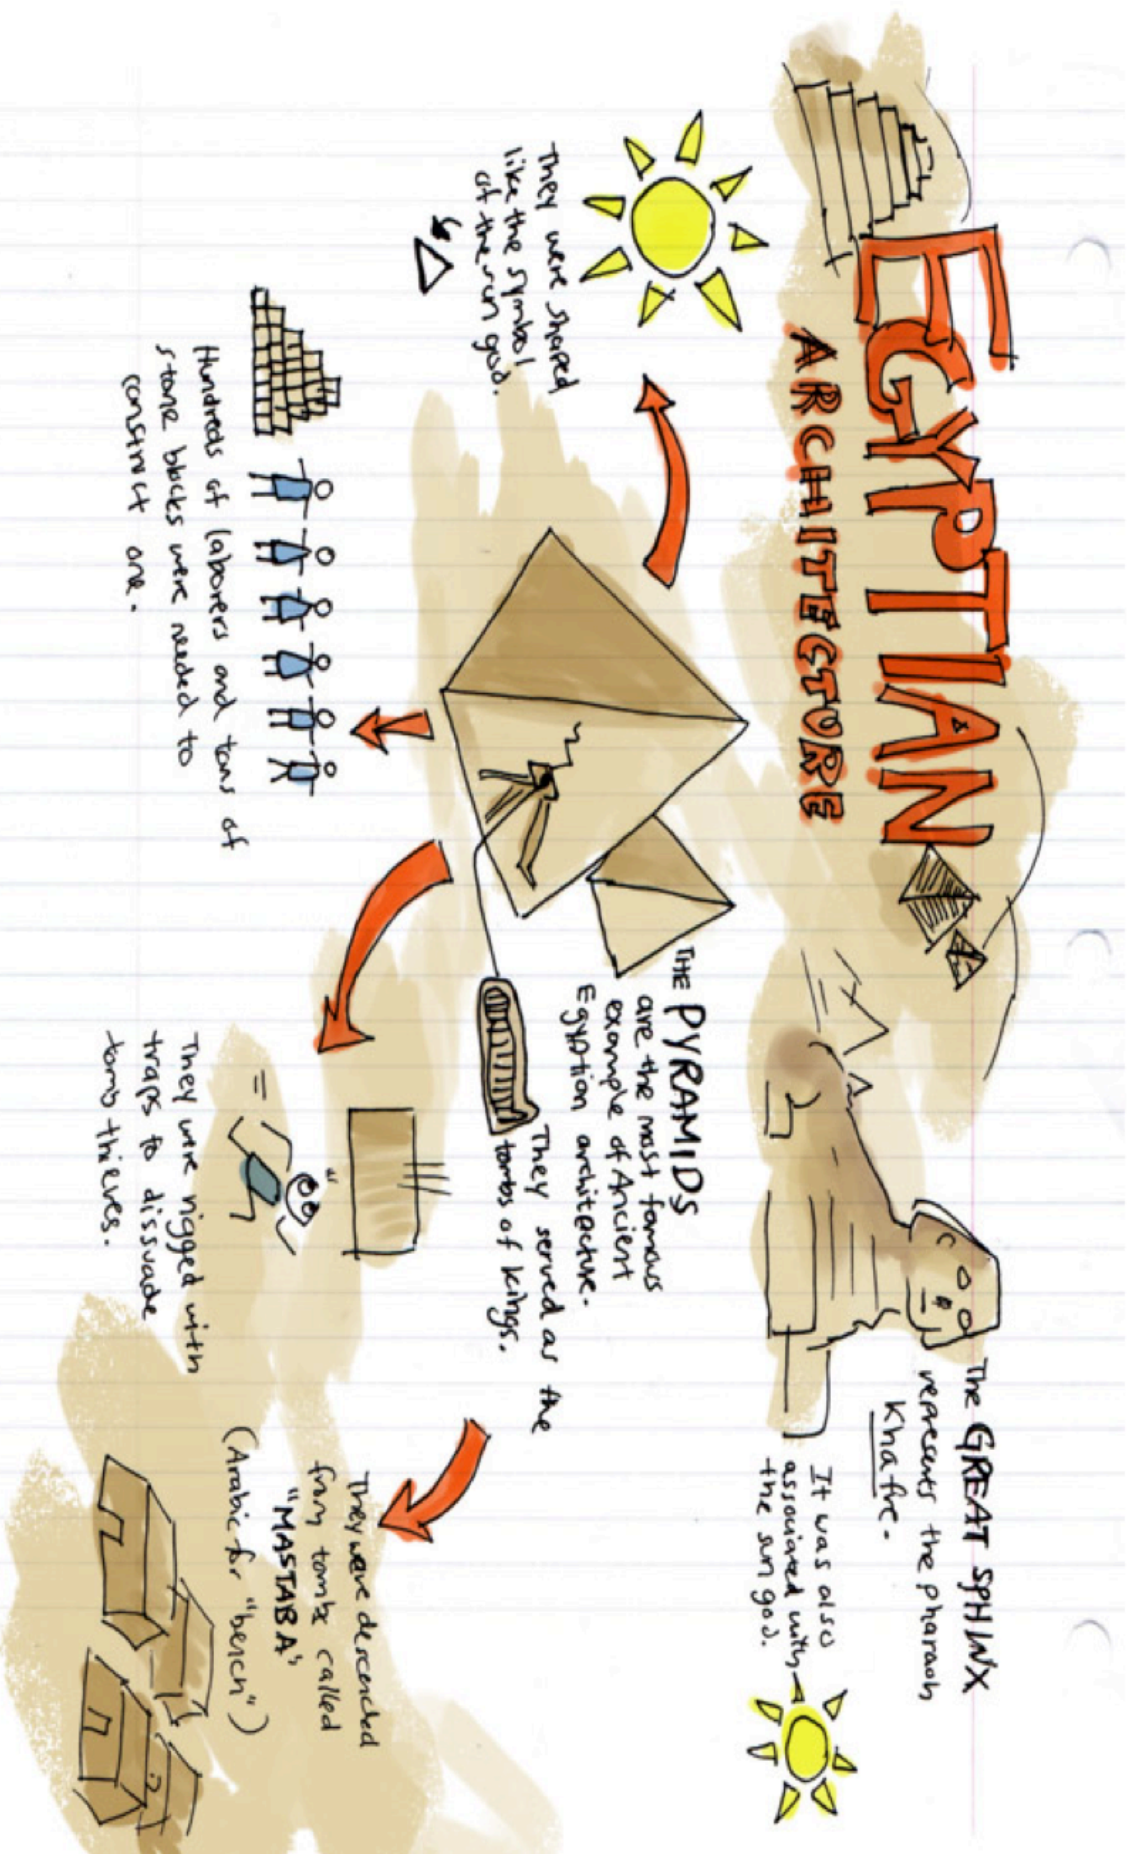 EGYPTIAN
ARCHITECTURE
The GREAT SPHINX
represents the pharaoh
Khafre.
It was also
associated with
the sun god.
THE PYRAMIDS
are the most famous
example of Ancient
Egyption architecture.
They served as the
tombs of kings.
They were shaped
like the symbol
of the sun god.
Hundreds of laborers and tons of
stone blocks were needed to
construct one.
They were rigged with
traps to dissuade
tomb thieves.
They were descended
from tombs called
"MASTABA"
(Arabic for "bench")